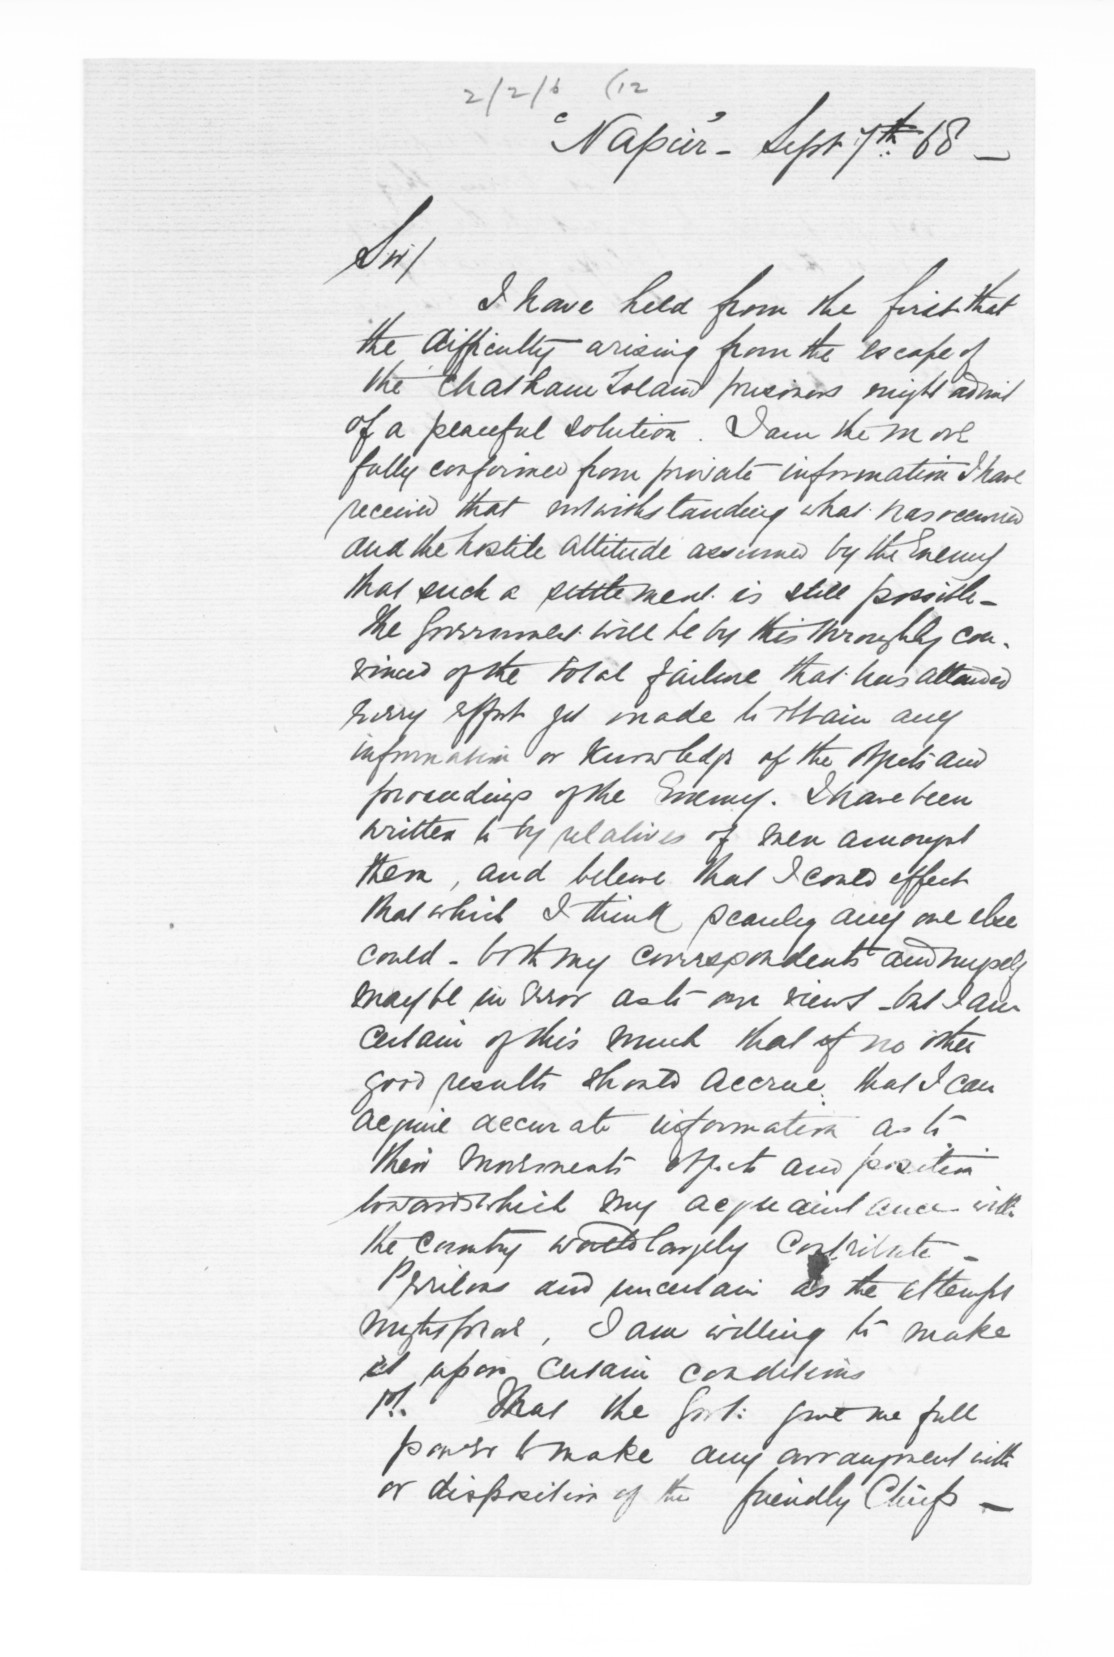 2/2/6 (12
"Napier" - Sept 7th 68 -
Sir/
I have held from the first that
the difficulty arising from the escape of
the Chatham Island prisoners might admit
of a peaceful solution. I am the more
fully confirmed from private information I have
received that notwithstanding what has occurred
and the hostile attitude assumed by the Enemy
that such a settlement is still possible -
The Government will be by this thoroughly con-
vinced of the total failure that has attended
every effort yet made to obtain any
information or knowledge of the objects and
proceedings of the Enemy. I have been
written to by relatives of men amongst
them, and believe that I could effect
that which I think scarcely any one else
could - both my correspondents and myself
may be in error as to our views - but I am
certain of this much that if no other
good results should accrue that I can
acquire accurate information as to
their movements objects and position
towards which my acquaintance with
the country would largely contribute -
Perilous and uncertain as the attempt
might prove, I am willing to make
it upon certain conditions
1st. That the Govt: give me full
power to make any arrangement with
or disposition of the friendly Chiefs -